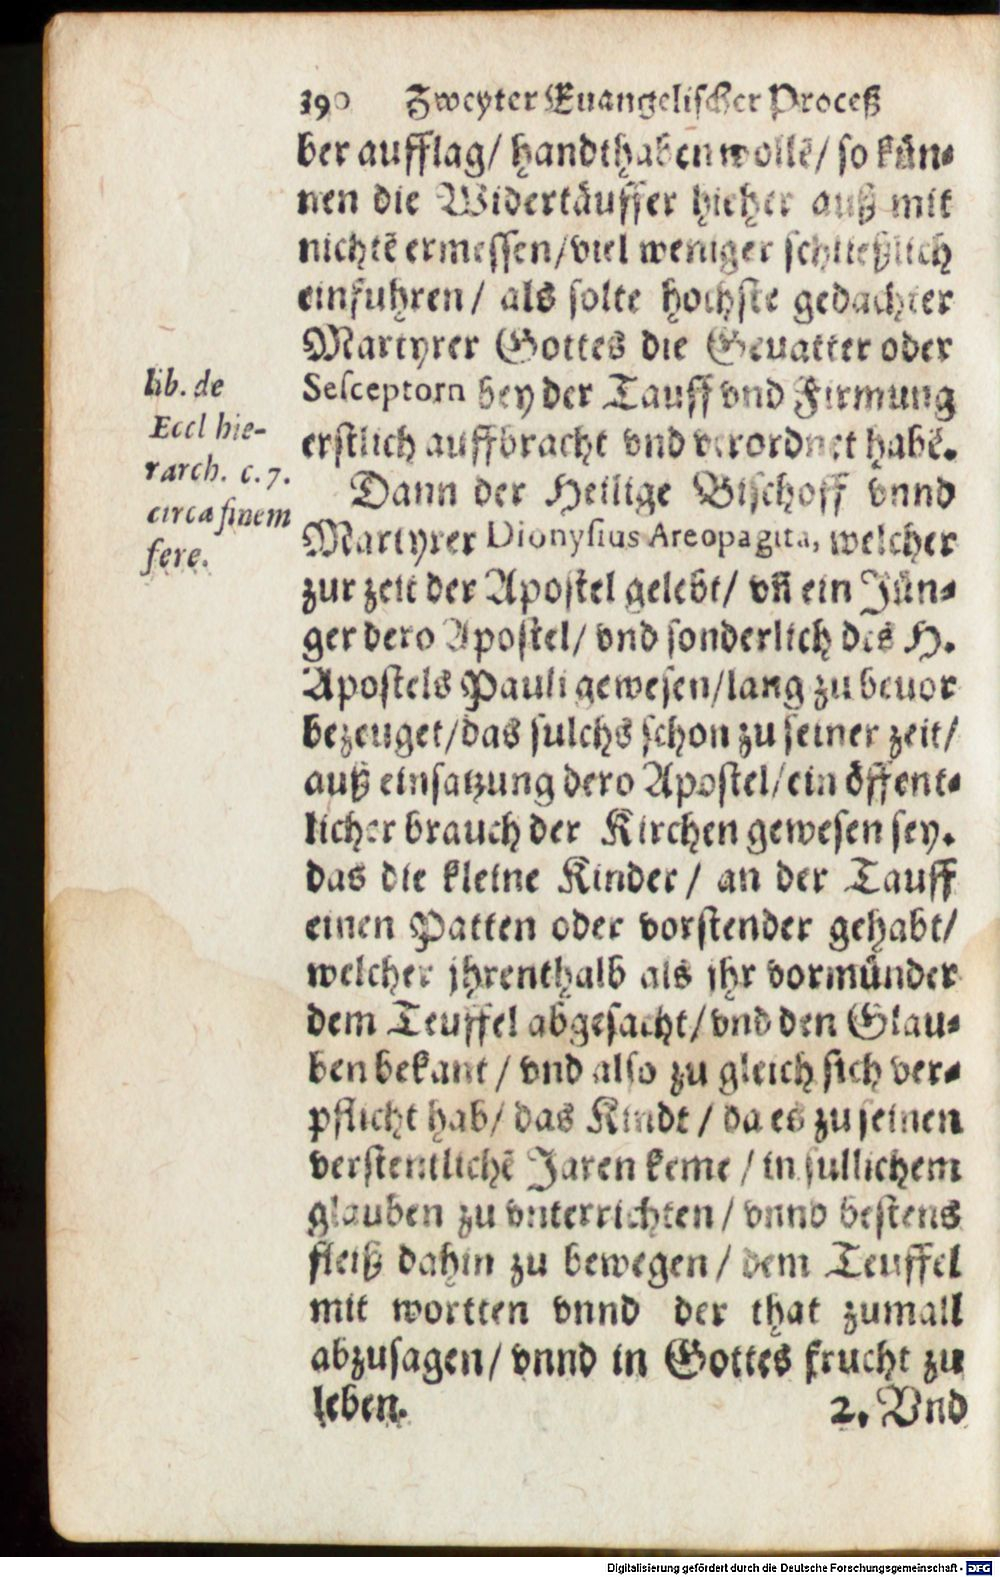 390 Zweyter Euangelischer Proceß
ber aufflag/ handthaben wollē/ so kün-
nen die Widertäuffer hieher auß mit
nichtē ermessen/ viel weniger schließlich
einfuhren/ als solte hochste gedachter
Martyrer Gottes die Geuatter oder
Sesceptorn bey der Tauff vnd Firmung
erstlich auffbracht vnd verordnet habē.
Dann der Heilige Bischoff vnnd
Martyrer Dionysius Areopagita, welcher
zur zeit der Apostel gelebt/ vñ ein Jün-
ger dero Apostel/ vnd sonderlich des H.
Apostels Pauli gewesen/ lang zu beuor
bezeuget/ das sulchs schon zu seiner zeit/
auß einsatzung dero Apostel/ ein öffent-
licher brauch der Kirchen gewesen sey.
das die kleine Kinder/ an der Tauff
einen Patten oder vorstender gehabt/
welcher jhrenthalb als jhr vormünder
dem Teuffel abgesacht/ vnd den Glau-
ben bekant/ vnd also zu gleich sich ver-
pflicht hab/ das Kindt/ da es zu seinen
verstentlichē Jaren keme/ in sullichem
glauben zu vnterrichten/ vnnd bestens
fleiß dahin zu bewegen/ dem Teuffel
mit wortten vnnd der that zumall
abzusagen/ vnnd in Gottes frucht zu
leben.
2. Vnd
lib. de
Eccl hie-
rarch. c. 7.
circa finem
fere.
Digitalisierung gefördert durch die Deutsche Forschungsgemeinschaft - DFG